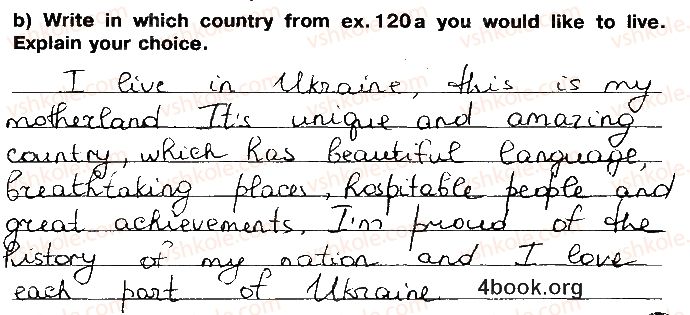 b) Write in which country from ex. 120 a you would like to live.
Explain your choice.
I live in Ukraine, this is my
motherland. It's unique and amazing
country, which has beautiful language,
breathtaking places, hospitable people and
great achievements. I'm proud of the
history of my nation and I love
each part of Ukraine 4book.org